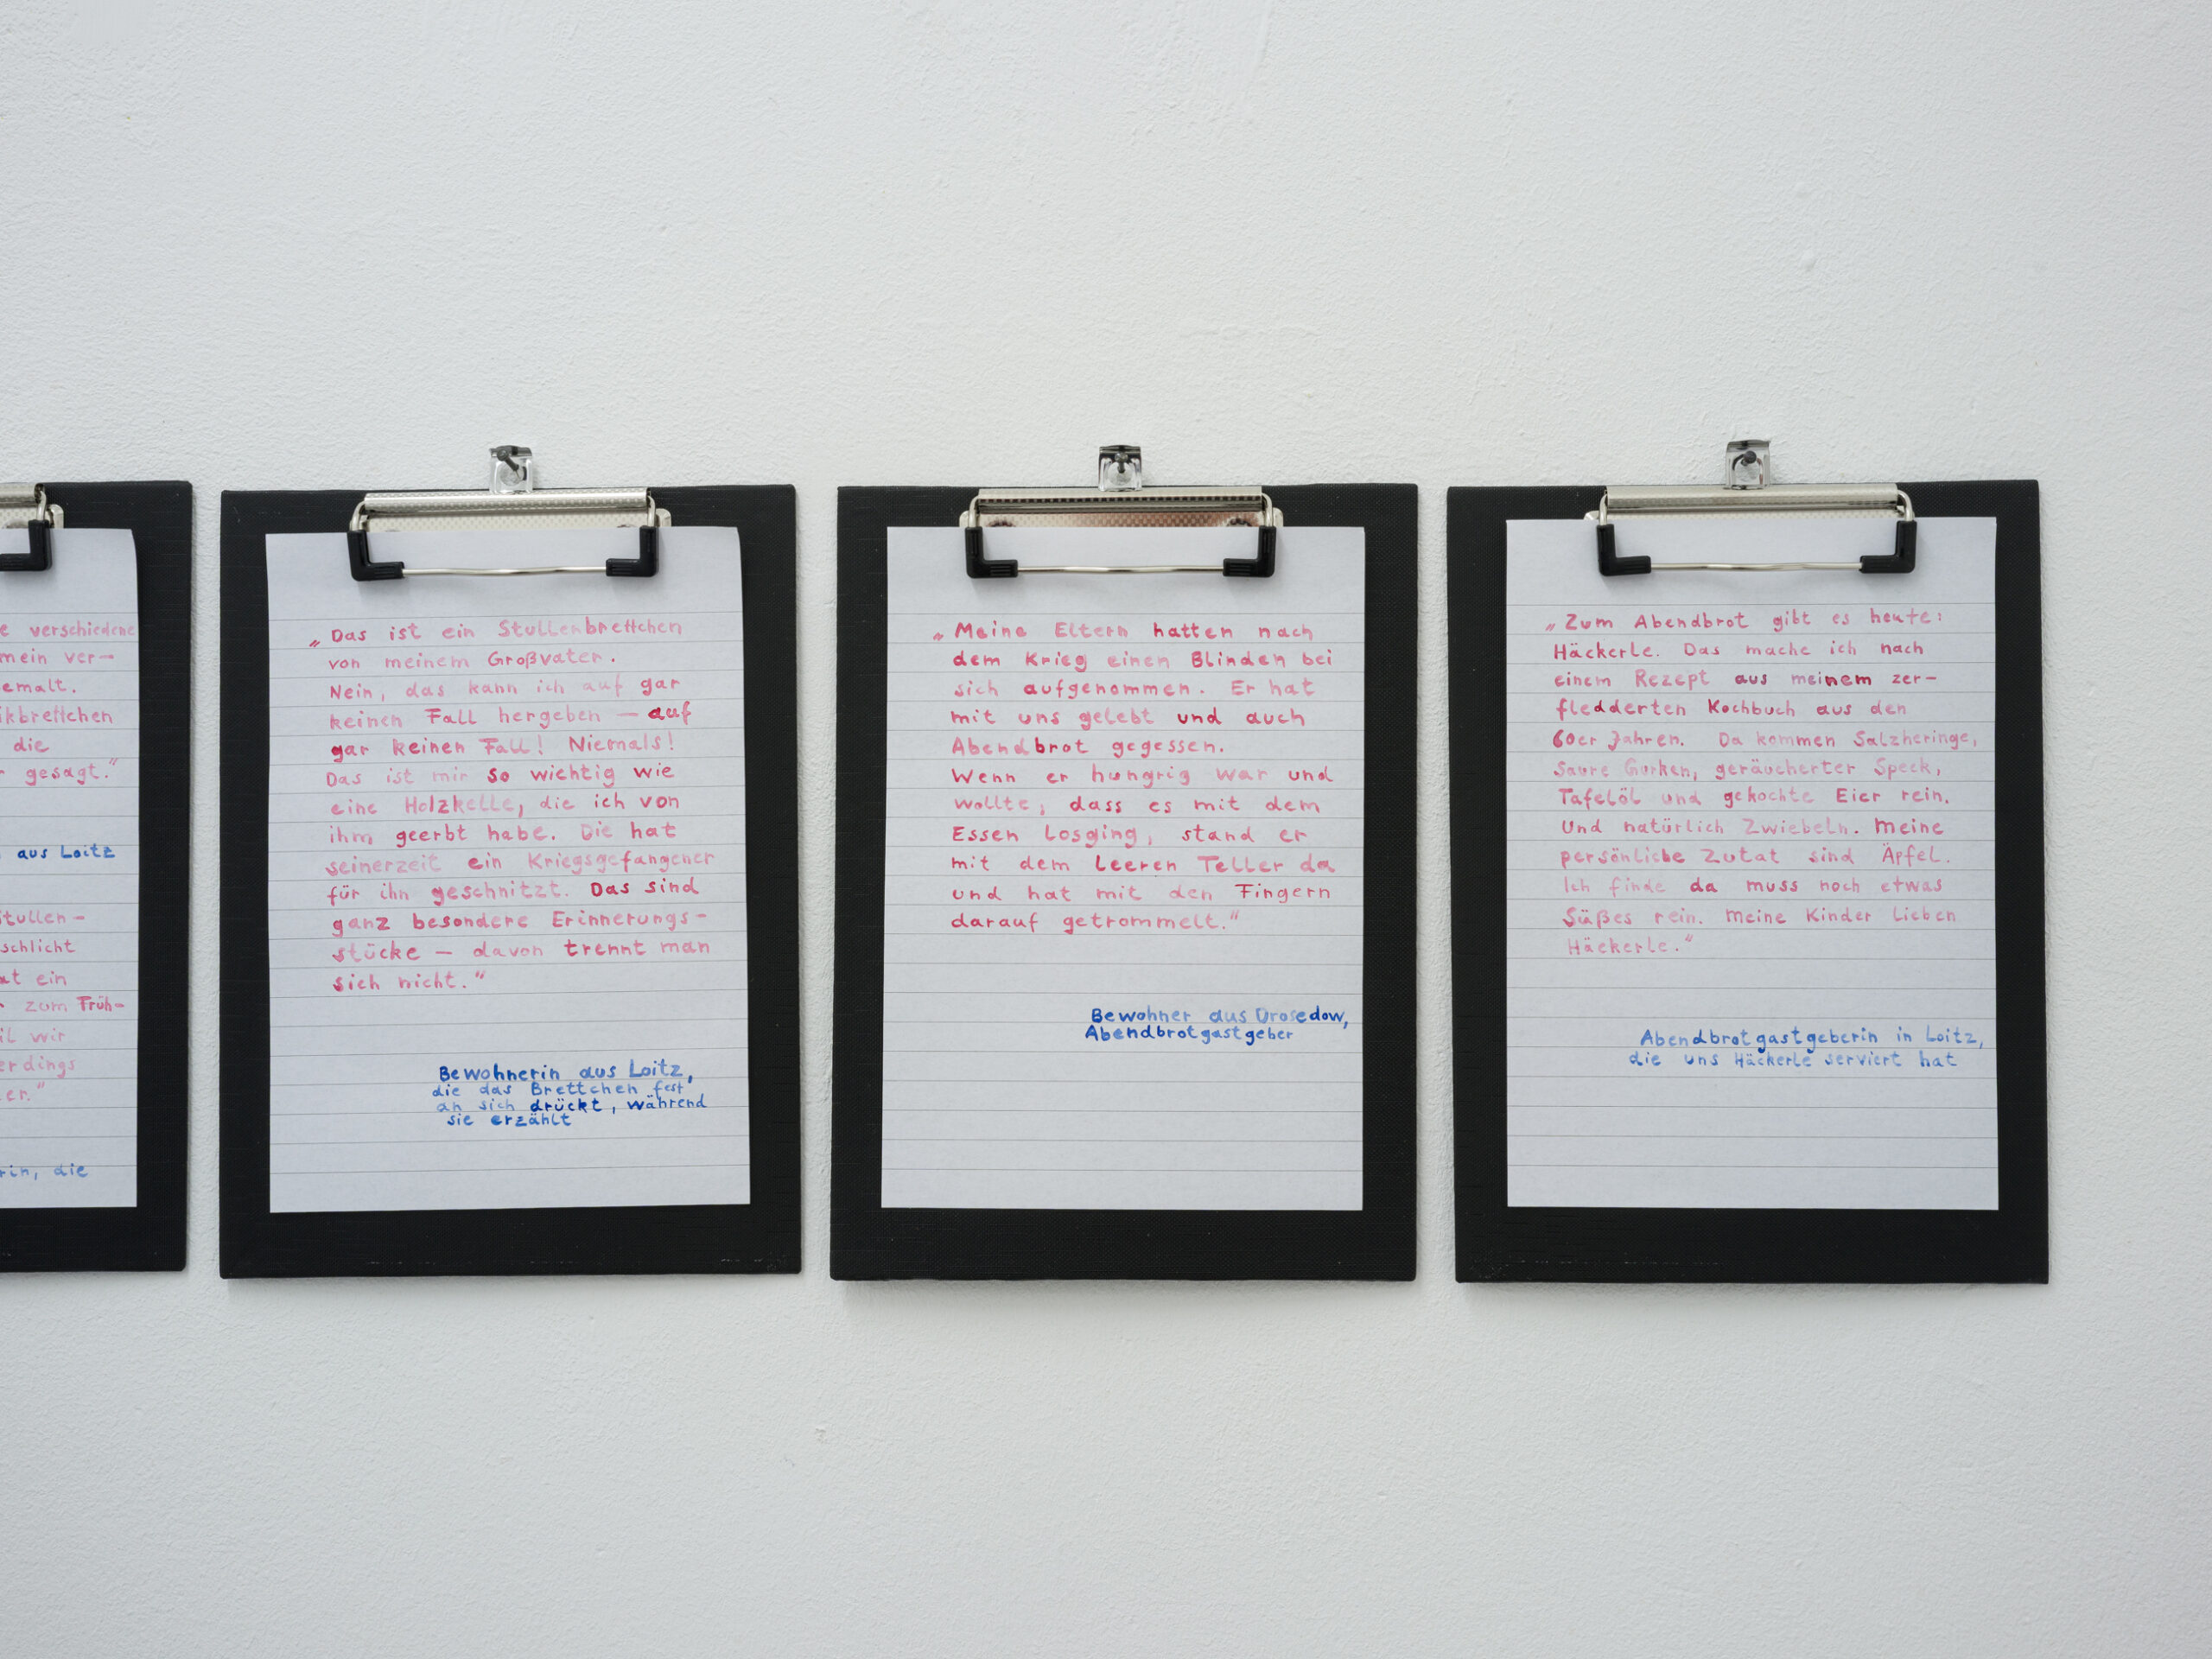 e verschiedene
mein ver-
emalt.
ikbrettchen
die
r gesagt."
aus Loitz
tullen-
schlicht
at ein
zum Früh-
il wir
erdings
er."
rin, die
„Das ist ein Stullenbrettchen
von meinem Großvater.
Nein, das kann ich auf gar
keinen Fall hergeben – auf
gar keinen Fall! Niemals!
Das ist mir so wichtig wie
eine Holzkelle, die ich von
ihm geerbt habe. Die hat
seinerzeit ein Kriegsgefangener
für ihn geschnitzt. Das sind
ganz besondere Erinnerungs-
stücke – davon trennt man
sich nicht."
Bewohnerin aus Loitz,
die das Brettchen fest
an sich drückt, während
sie erzählt
„Meine Eltern hatten nach
dem Krieg einen Blinden bei
sich aufgenommen. Er hat
mit uns gelebt und auch
Abendbrot gegessen.
Wenn er hungrig war und
wollte, dass es mit dem
Essen losging, stand er
mit dem leeren Teller da
und hat mit den Fingern
darauf getrommelt."
Bewohner aus Drosedow,
Abendbrotgastgeber
„Zum Abendbrot gibt es heute:
Häckerle. Das mache ich nach
einem Rezept aus meinem zer-
fledderten Kochbuch aus den
60er Jahren. Da kommen Salzheringe,
Saure Gurken, geräucherter Speck,
Tafelöl und gekochte Eier rein.
Und natürlich Zwiebeln. Meine
persönliche Zutat sind Äpfel.
Ich finde da muss noch etwas
Süßes rein. Meine Kinder lieben
Häckerle."
Abendbrotgastgeberin in Loitz,
die uns Häckerle serviert hat